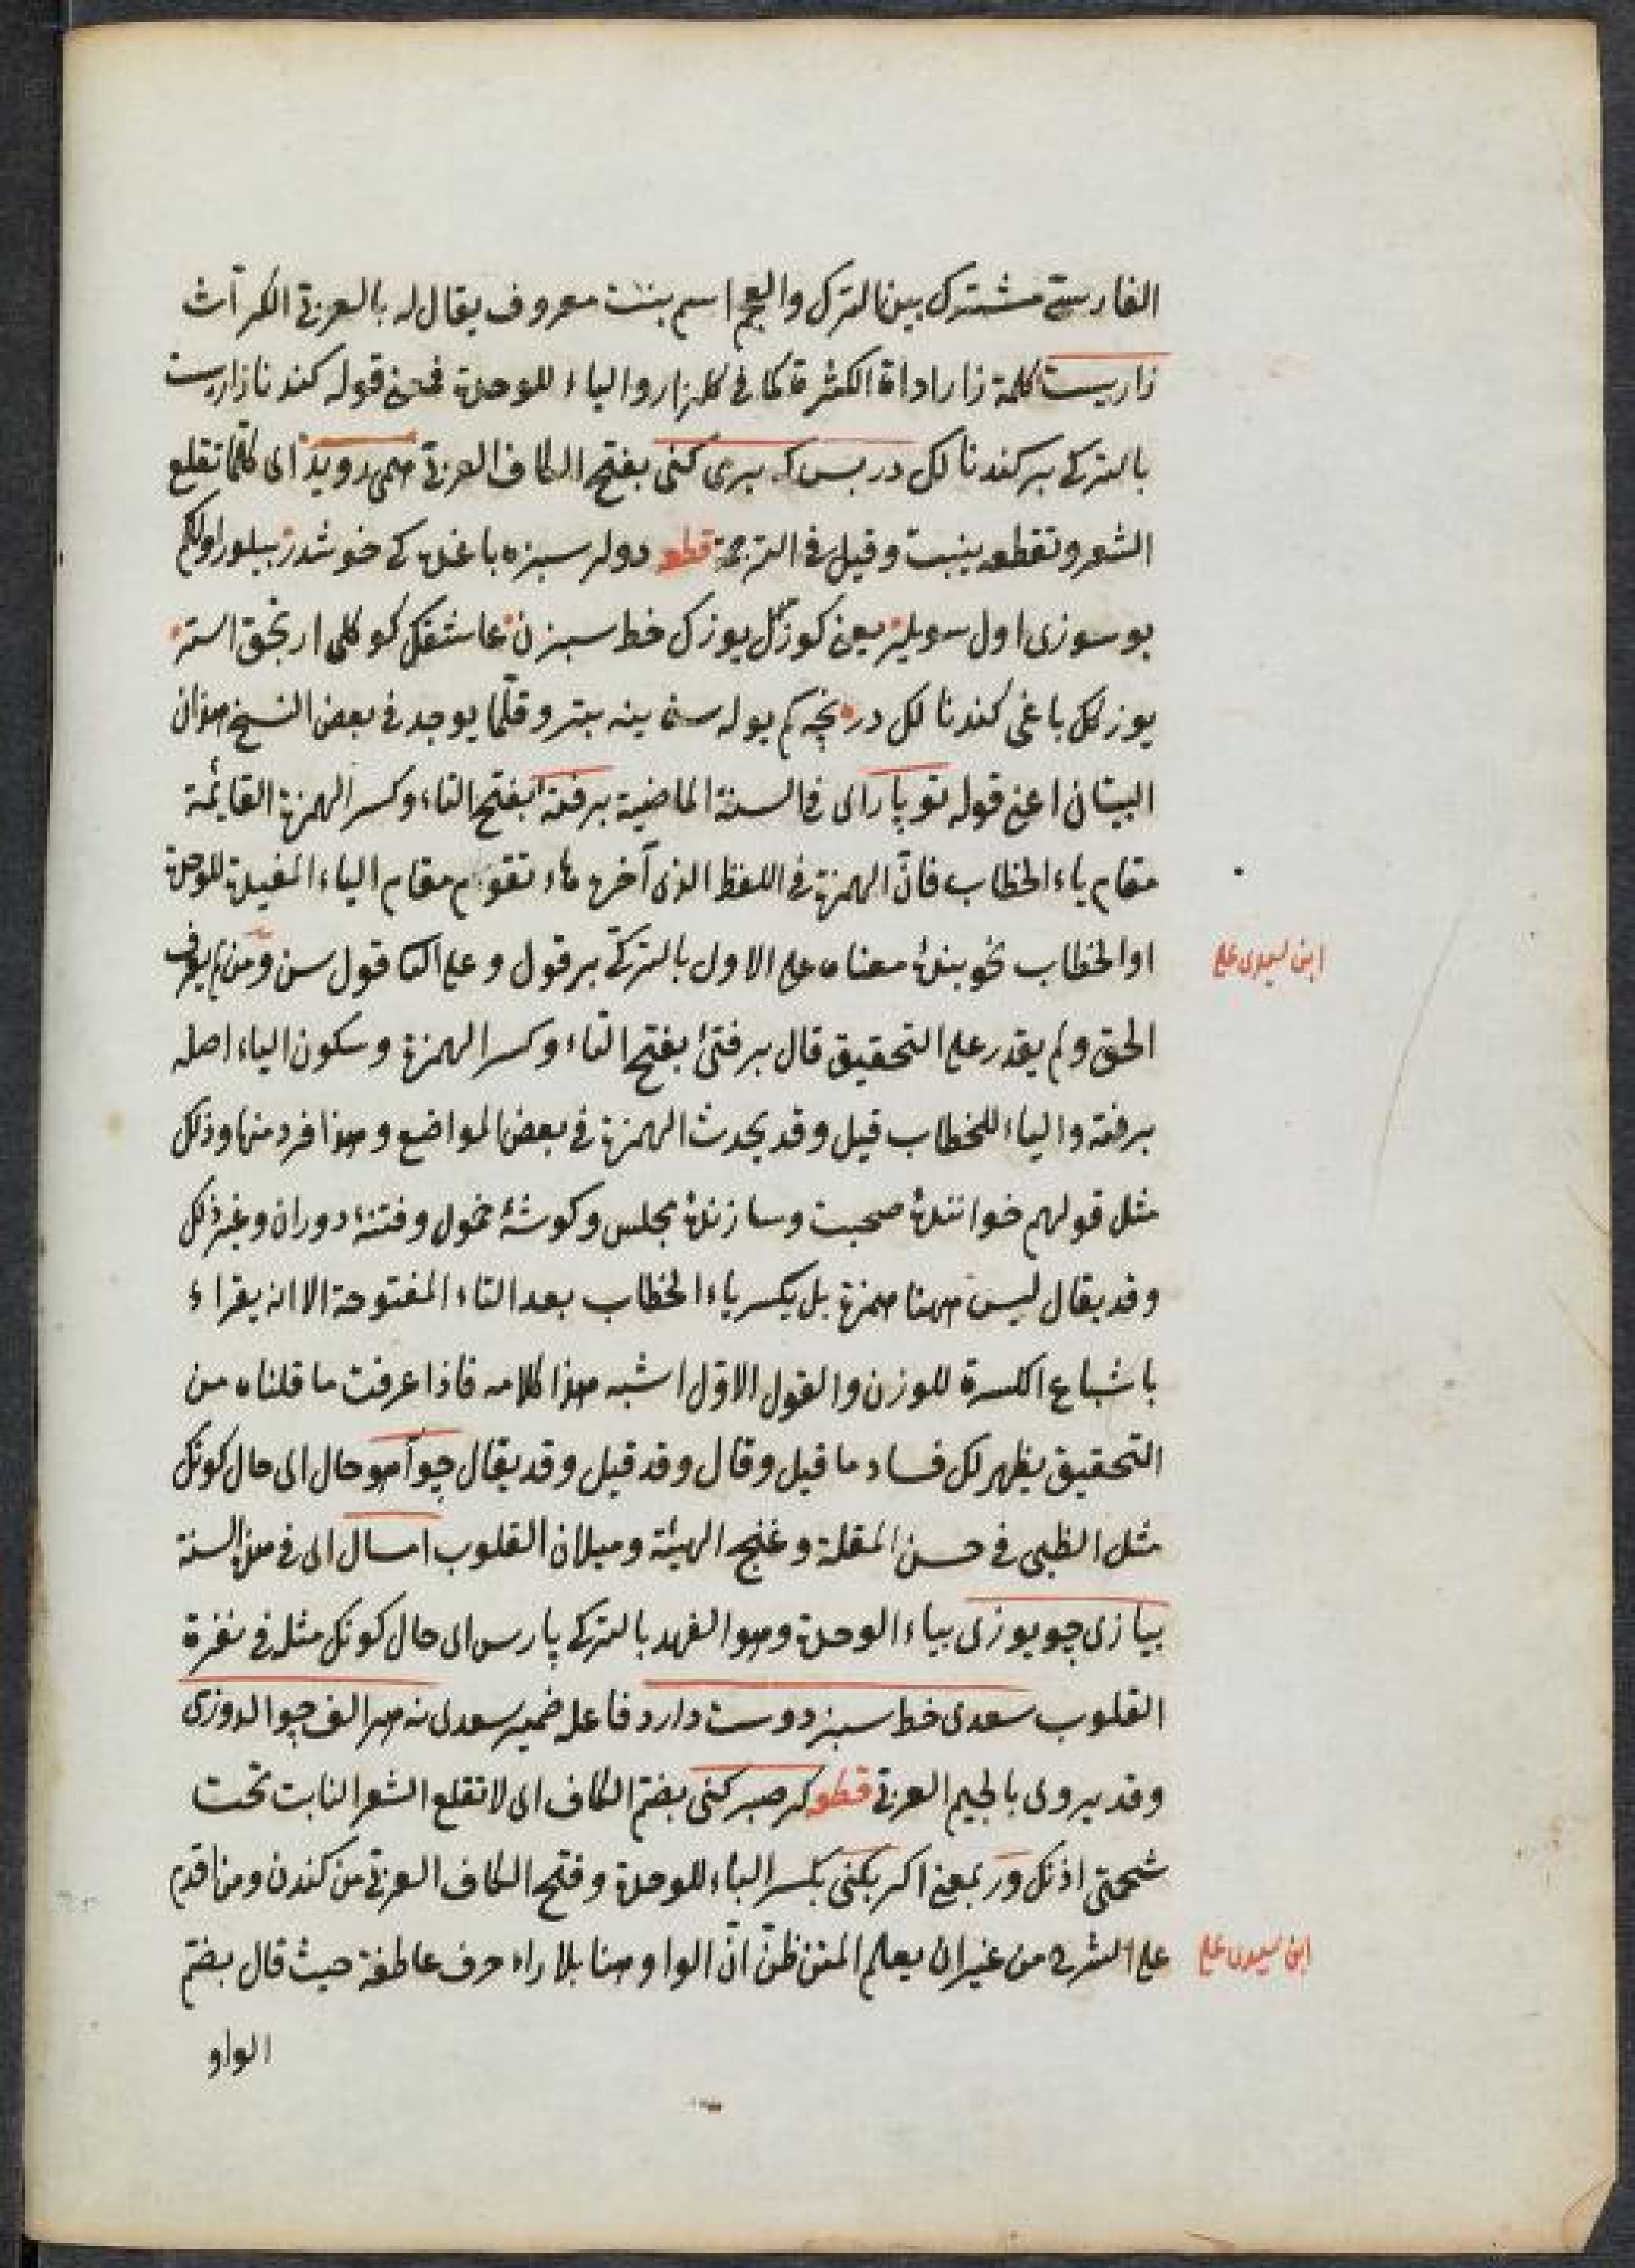 الفارسيّ مشترك بين الترك والعجم اسم بنت معروف يقال له بالعربيّ الكرّاث
زاريست كلمة زار اداة الكثرة كما في كلزار والياء للوحدة فمعنى قوله كندنا زاريست
بالتركي بر كندنا لك در بس كه برى كنى بفتح الكاف العربيّ مى رويد اى كلّما تقلع
الشعر وتقطعه ينبت وقيل في الترجمة قطعه ديرلر سبزه باغده كى خوشدر بيلور اولكم
بو سوزى اول سويلر يعنى كوزل يوزك خط سبزن عاشقك كوكلى ارتجق استر
يوزكل باغى كندنا لك در نجه كم يوله سن ينه بتر وقلّما يوجد في بعض النسخ هذان
البيتان اعنى قوله تو پار اى في السنة الماضية برفتهٔ بفتح التاء وكسر الهمزة القائمة
مقام ياء الخطاب فانّ الهمزة في اللفظ الذى آخره هاء تقوم مقام الياء المفيدة للوحدة
او الخطاب نحو بندهٔ معناه على الاول بالتركيّ بر قول وعلى الثا قول سن ومن لم يعرف
ابن سيدى على
الحق ولم يقدر على التحقيق قال برفتئ بفتح التاء وكسر الهمزة وسكون الياء اصله
برفته والياء للخطاب قيل وقد يحدث الهمزة في بعض المواضع وهذا فرد منها وذلك
مثل قولهم خوانندهٔ صحبت وسازندهٔ مجلس وكوشهٔ خمول وفتنهٔ دوران وغير ذلك
وقد يقال ليس ههنا همزة بل يكسر ياء الخطاب بعد التاء المفتوحة الا انه يقراء
باشباع الكسرة للوزن والقول الاوّل اشبه هذا كلامه فاذا عرفت ما قلناه من
التحقيق يظهر لك فساد ما قيل وقال وقد قيل وقد يقال چو آهو حال اى حال كونك
مثل الظبى في حسن المقلة وغنج الهيئة وميلان القلوب امسال اى في هذه السنة
بيازى چو يوزى بياء الوحدة وهو الفهد بالتركى پارس اى حال كونك مثله في نفرة
القلوب سعدى خط سبز دوست دارد فاعله ضمير سعدى نه هر الف جوالدوزى
وقد يروى بالجيم العربيّ قطعه كر صبر كنى بضمّ الكاف اى لا تقلع الشعر النابت تحت
شحمتى اذنك ور بمعنى اكر بكنى بكسر الباء للوحدة وفتح الكاف العربيّ من كندن ومن اقدم
على الشرح من غير ان يعلم المتن ظنّ انّ الواو هنا بلا راء حرف عاطفة حيث قال بضمّ
ابن سيدى على
الواو